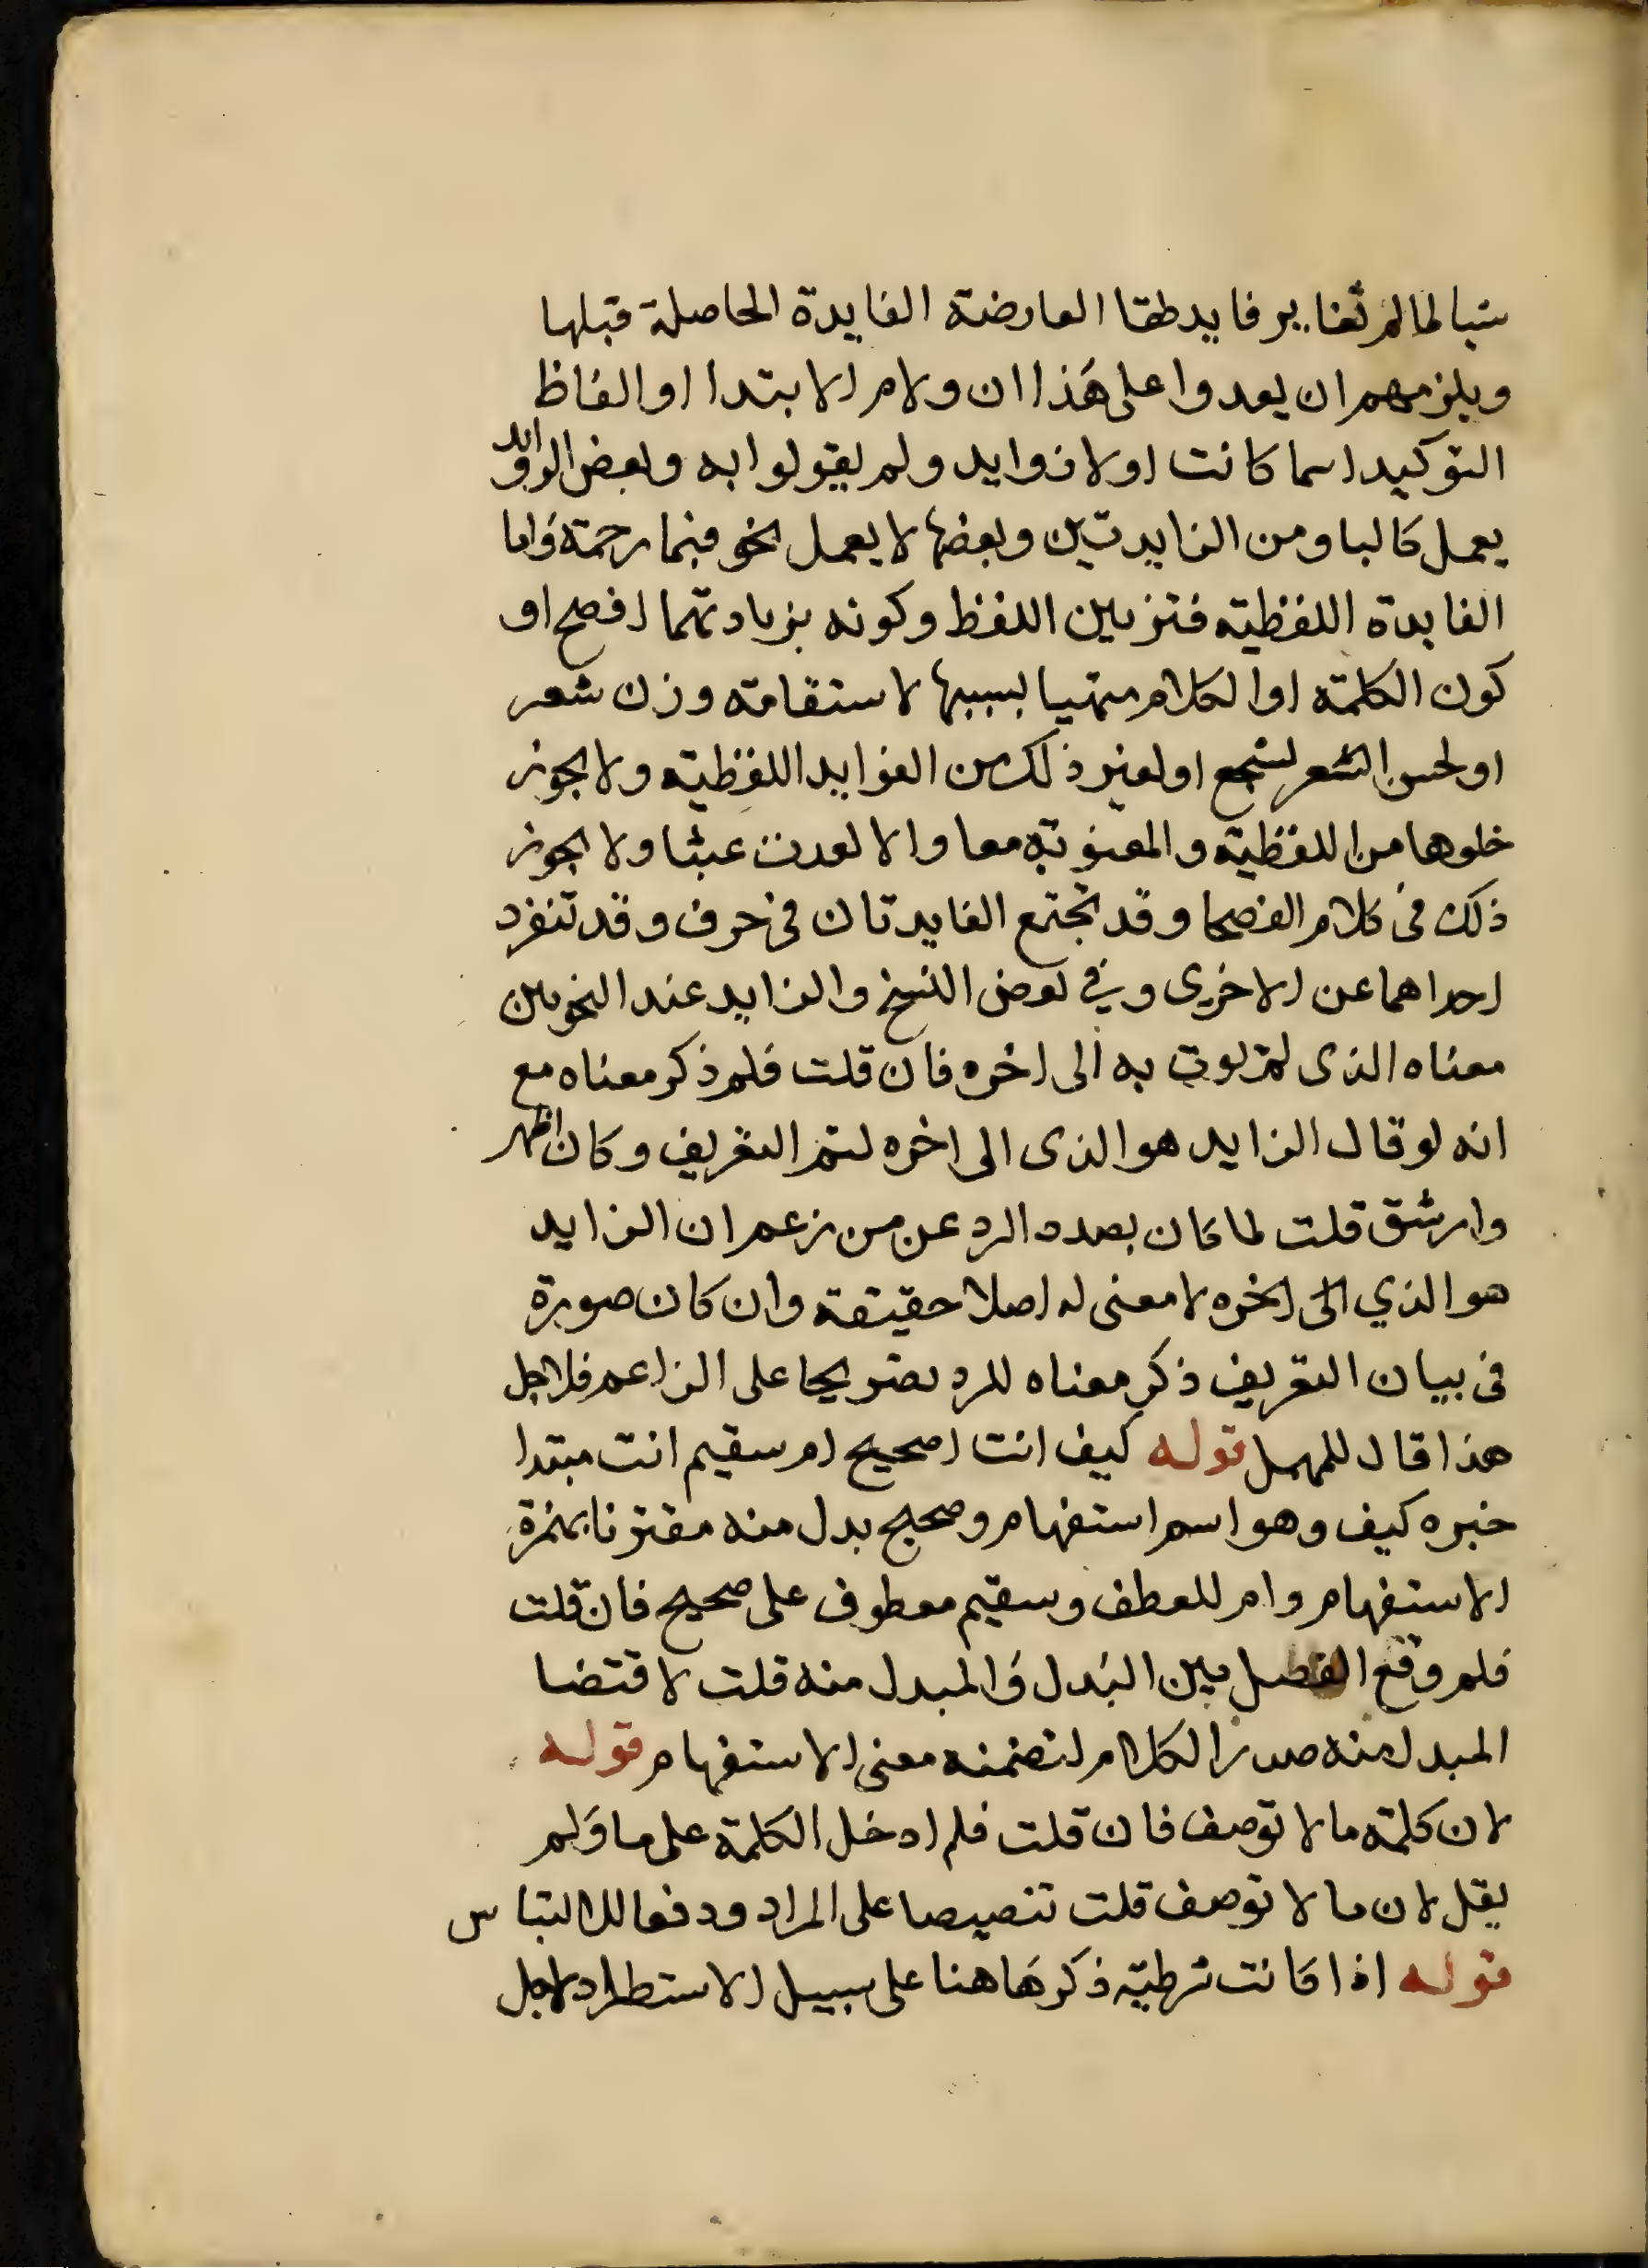 شيا لما لم تغاير فايدطقا العارضة الفايدة الحاصلة قبلها
ويلزمهم ان يعدوا على هذا ان ولام الابتدا او الفاظ
التوكيد اسما كانت اولا زوايد ولم يقولوا به وبعض الزوايد
يعمل كالبا ومن الزايدتين وبعضها لا يعمل نحو فبما رحمة واما
الفايدة اللفظية فتزيين اللفظ وكونه بزيادتهما افصح او
كون الكلمة او الكلام متهيا بسببها لاستقامة وزن شعر
او لحسن الشعر لسجع او لغير ذلك من الفوايد اللفظية ولا يجوز
خلوها من اللفظية والمعنوية معا والا لعدت عبثا ولا يجوز
ذلك في كلام الفصحا وقد تجتمع الفايدتان في حرف وقد تنفرد
احداهما عن الاخرى وفي بعض النسخ والزايد عند النحويين
معناه الذى لم يوت به الى اخره فان قلت فلم ذكر معناه مع
انه لو قال الزايد هو الذى الى اخره لتم التعريف وكان اظهر
وارشق قلت لما كان بصدد الرد عن من زعم ان الزايد
هو الذي الى اخره لا معنى له اصلا حقيقة وان كان صورة
فى بيان التعريف ذكر معناه للرد تصريحا على الزاعم فلاجل
هذا قال للمهمل قوله كيف انت اصحيح ام سقيم انت مبتدا
خبره كيف وهو اسم استفهام وصحيح بدل منه مقترنا بهمزة
الاستفهام وام للعطف وسقيم معطوف على صحيح فان قلت
فلم وقع الفصل بين البدل والمبدل منه قلت لاقتضا
المبدل منه صدر الكلام لتضمنه معنى الاستفهام قوله
لان كلمة ما لا توصف فان قلت فلم ادخل الكلمة على ما ولم
يقل لان ما لا توصف قلت تنصيصا على المراد ودفعا للالتباس
قوله اذا كانت شرطية ذكرها هنا على سبيل الاستطراد لاجل